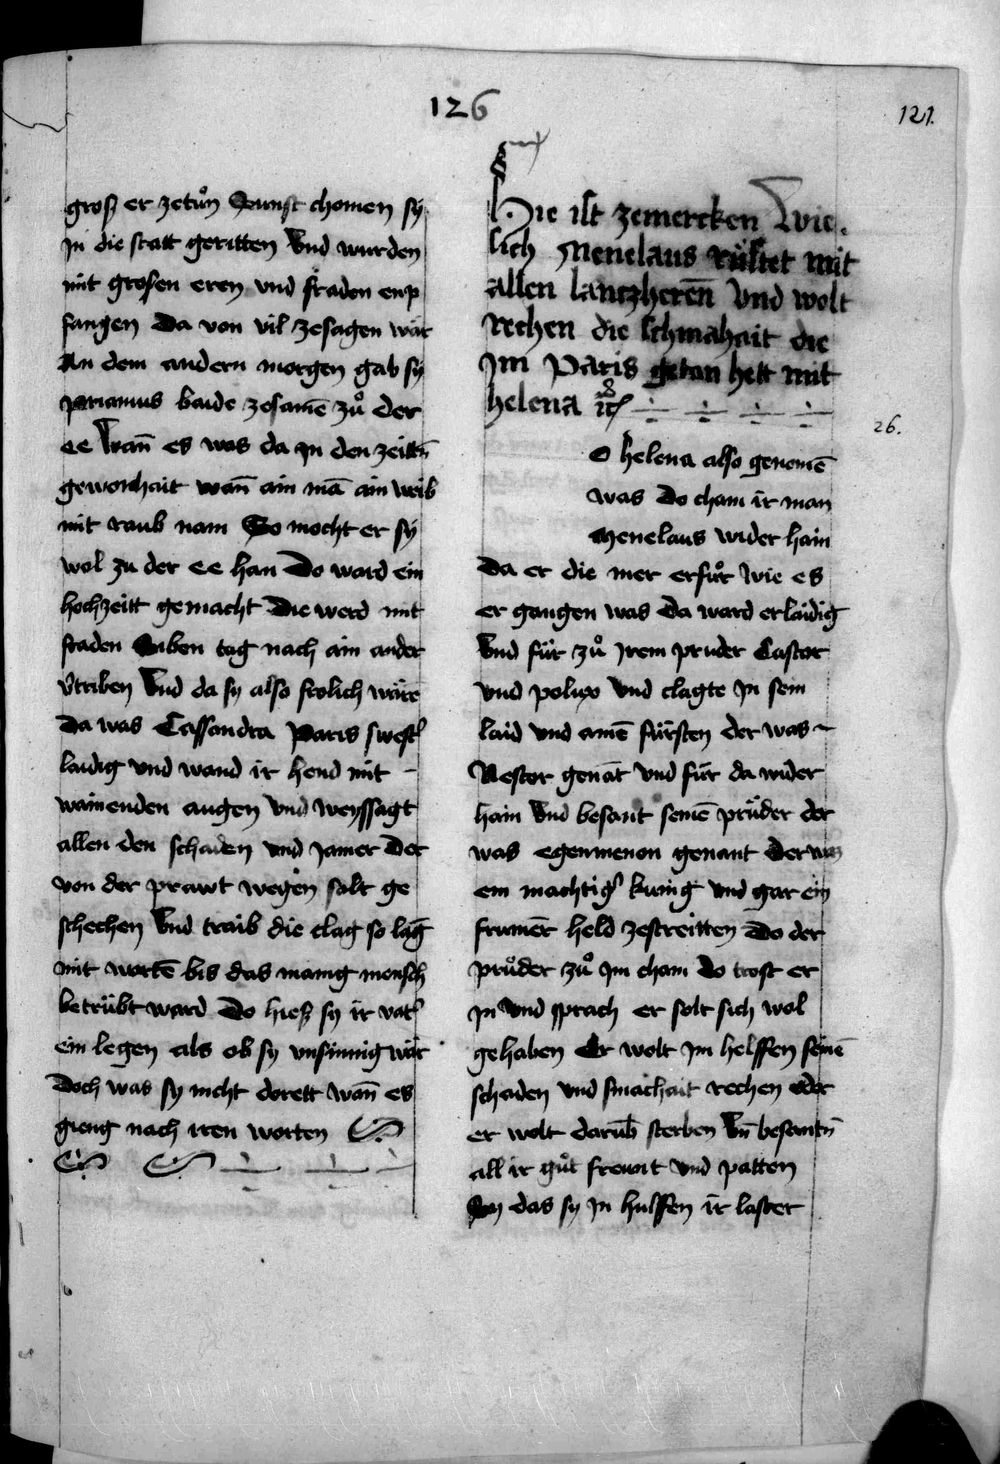 126
121.
grosz er zetuͦn Sunst chomen sy
In die statt geritten Vnd wurden
mit grosen eren vnd fraden enp
fangen Da von vil zesagen wär
An dem andern morgen gab sy
priamus baide zesamē zuͦ der
ee Wan̄ es was da In den zeittn̄
gewonhait wan̄ ain mā ain weib
mit raub nam So mocht er sy
wol zu der ee han Do ward ein
hochzeitt gemacht Die werd mit
fraden siben tag nach ain ander
vtriben Vnd da sy also frolich wäre
Da was Cassandra Paris swest
laidig vnd wand ir hend mit
wainenden augen vnd weyssagt
allen den schaden vnd Jamer Der
von der prawt wegen solt ge
schechen Vnd traib die clag so lāg
mit wortē bis das manig mensch
betrübt ward Do hiesz sy ir vat
ein legen als ob sy vnsinnig wär
Doch was sy nicht dorett wan̄ es
gieng nach iren worten
Hie ist zemercken Wie
sich Menelaus rüstet mit
allen lantzheren̄ Vnd wolt
rechen die schmahait die
Im Paris getan hett mit
helena
26.
O helena also genomē
was Do cham ir man
Menelaus wider hain
Da er die mer erfuͦr Wie es
er gangen was da ward er laidig
Vnd fuͦr zuͦ Irem pruder Castor
vnd polux vnd clagte In sein
laid vnd ainē fürsten der was
Nestor genāt vnd fuͦr da wider
hain Vnd besant seinē pruͦder der
was egenmenon genant Der was
ein machtig kunig vnd gar ein
frumēr held zestreitten Do der
pruͦder zuͦ Im cham do trost er
In Vnd sprach er solt sich wol
gehaben Er wolt Im helffen seinē
schaden vnd smachait rechen oder
er wolt darūb sterben Vn̄ besantn̄
all ir guͦt freunt vnd patten
Sy das sy In hulffen ir laster